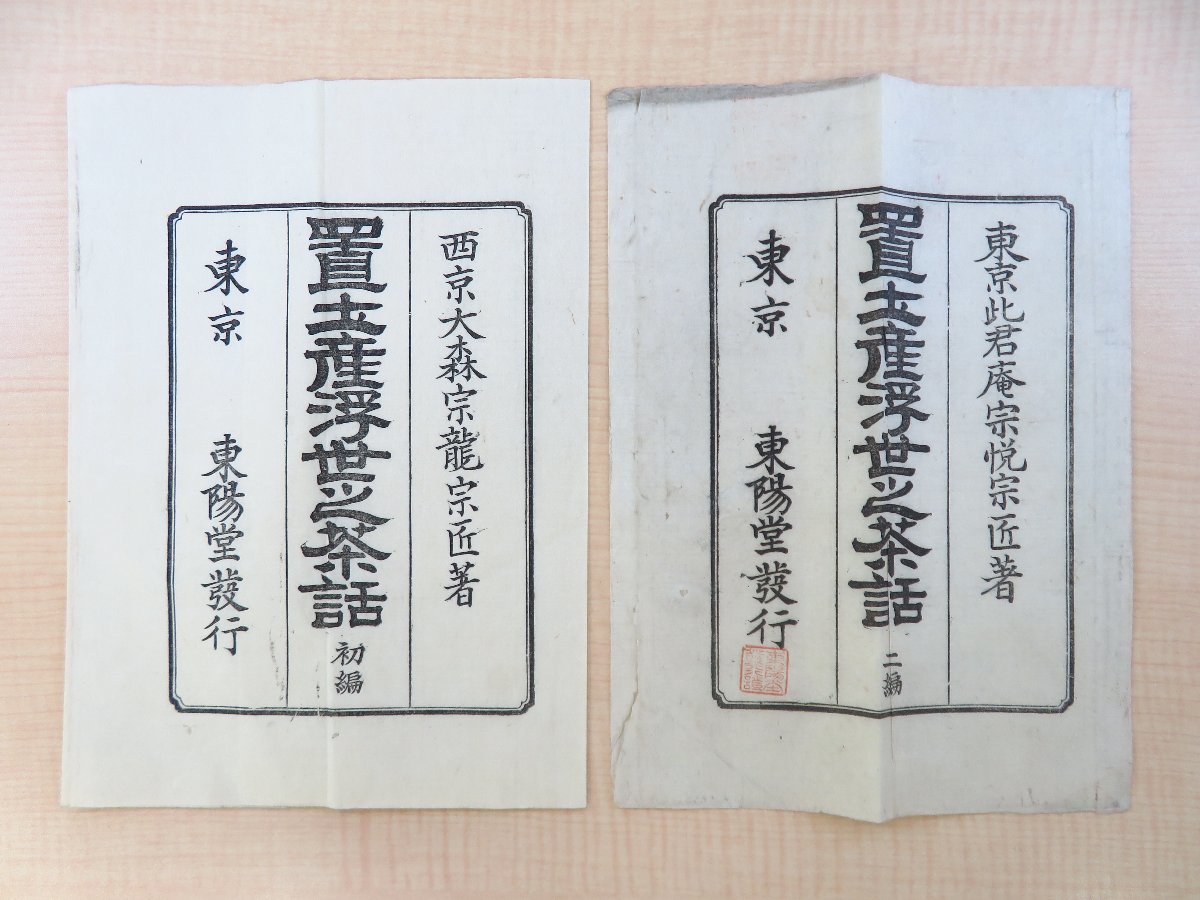 西京大森宗龍宗匠著
置土産浮世之茶話
初編
東京 東陽堂發行
東京此君庵宗悦宗匠著
置土産浮世之茶話
二編
東京 東陽堂發行